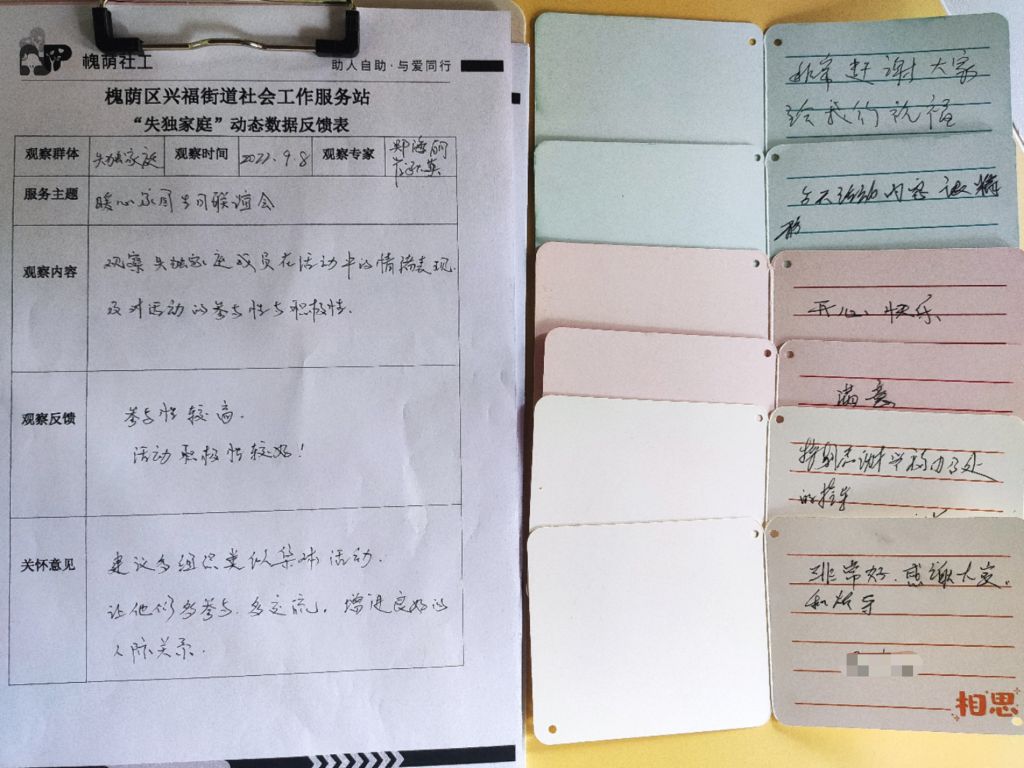 槐荫社工
助人自助·与爱同行
槐荫区兴福街道社会工作服务站
“失独家庭”动态数据反馈表
观察群体 失独家庭 观察时间 2022.9.8 观察专家 郑海丽
服务主题 暖心家园 联谊会
观察内容 观察失独家庭成员在活动中的情绪表现
及对活动的参与性与积极性.
观察反馈 参与性较高.
活动积极性较好!
关怀意见 建议多组织类似集体活动.
让他们多参与.多交流.增进良好的
人际关系.
非常感谢大家
给我们祝福
今天活动内容很精
彩
开心.快乐
满意
特别感谢兴福办事处
的
非常好.感谢大家
相思